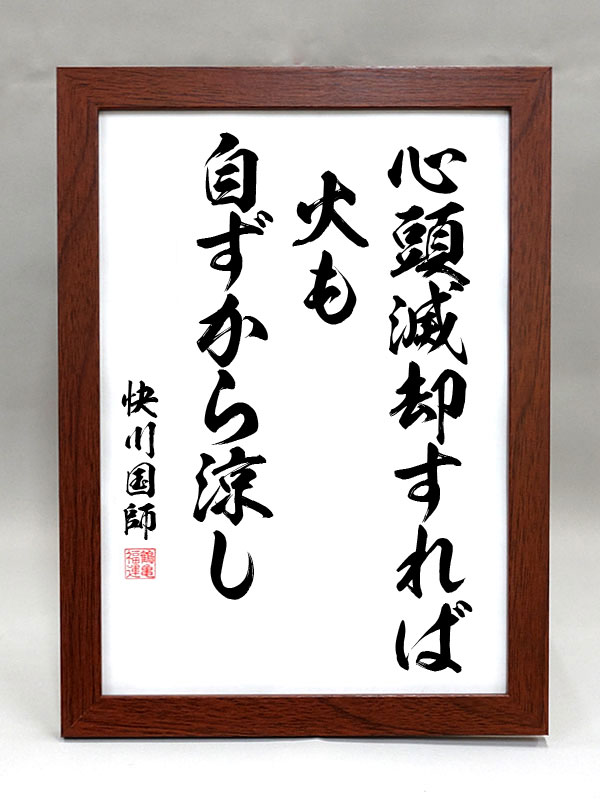 心頭滅却すれば
火も
自ずから涼し
快川国師
鶴亀
福運